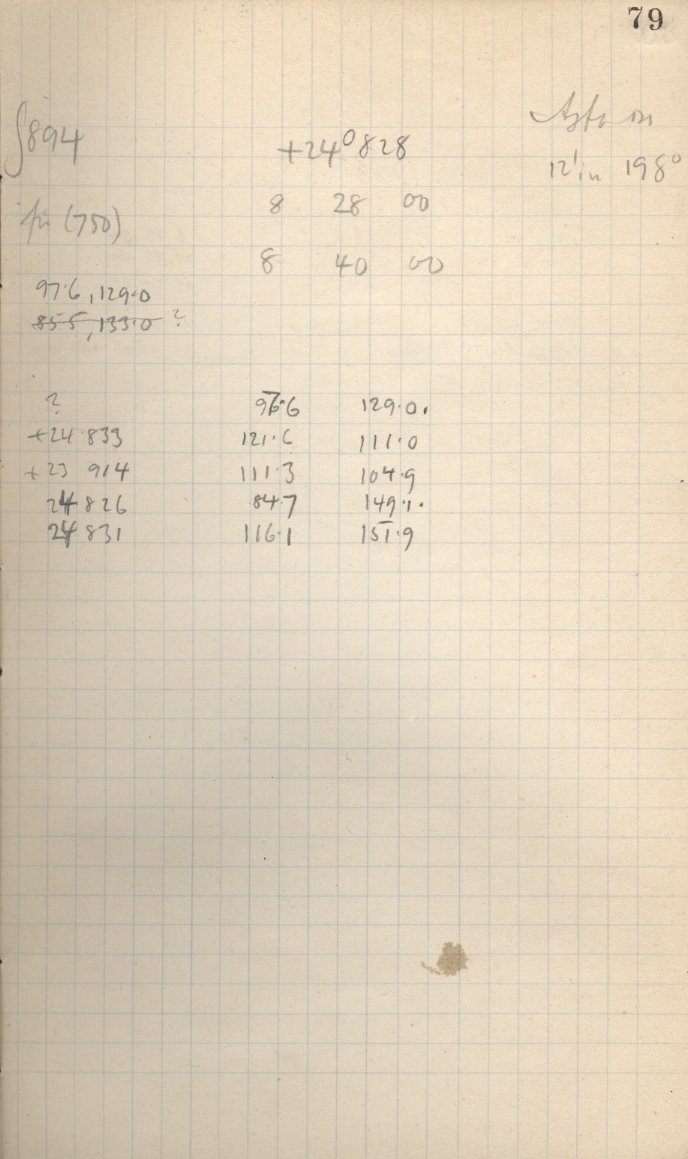 79
894 +24° 828
12' in 198°
(750) 8 28 00
8 40 00
97.6, 129.0
85.5, 133.0 ?
? 97.6 129.0.
+24 833 121.6 111.0
+23 914 111.3 104.9
24 826 84.7 149.1.
24 831 116.1 151.9